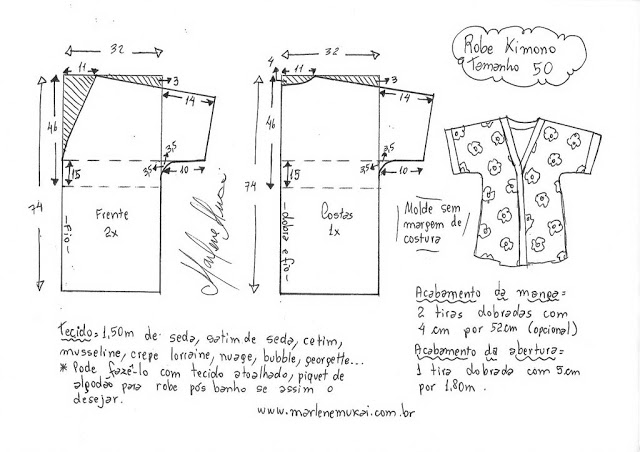 Robe Kimono
Tamanho 50
32
11
3
14
46
3,5
3,5
15
10
74
Frente
2x
-fio-
Marlene Mukai
32
4
11
3
14
46
3,5
3,5
15
10
74
Costas
1x
-dobra e fio-
Molde sem
margem de
costura
Acabamento da manga=
2 tiras dobradas com
4 cm por 52cm (opcional)
Acabamento da abertura=
1 tira dobrada com 5cm
por 1,80m.
Tecido=1,50m de seda, satim de seda, cetim,
musseline, crepe lorraine, nuage, bubble, georgette...
* Pode fazê-lo com tecido atoalhado, piquet de
algodão para robe pós banho se assim o
desejar.
www.marlenemukai.com.br